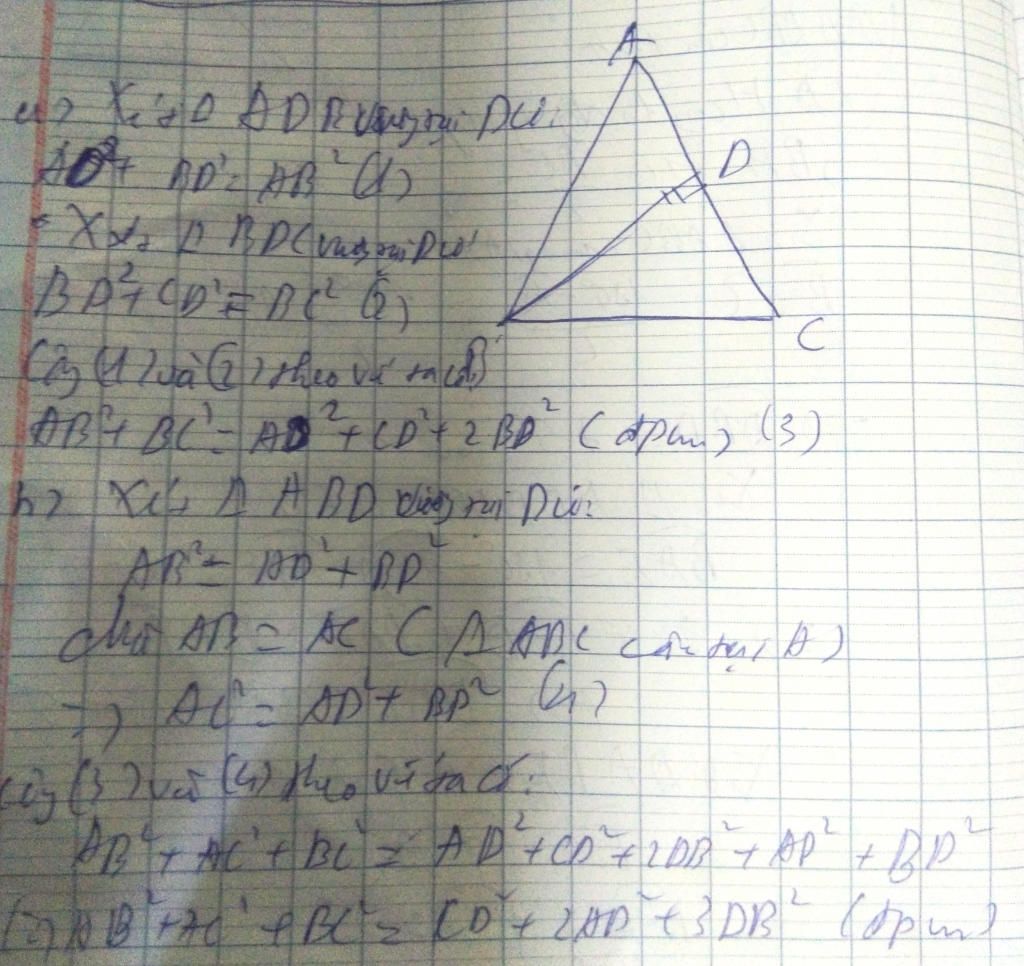 A
D
C
a) Xét Δ ADB vuông tại D có:
AD² + BD² = AB² (1)
* Xét Δ BDC vuông tại D có
BD² + CD² = BC² (2)
Cộng (1) và (2) theo vế ta có
AB² + BC² = AD² + CD² + 2BD² (đpcm) (3)
b) Xét Δ ABD vuông tại D có:
AB² = AD² + BD²
AB = AC (Δ ABC cân tại A)
=> AC² = AD² + BD² (4)
Cộng (3) và (4) theo vế ta có:
AB² + AC² + BC² = AD² + CD² + 2DB² + AD² + BD²
AB² + AC² + BC² = CD² + 2AD² + 3DB² (đpcm)